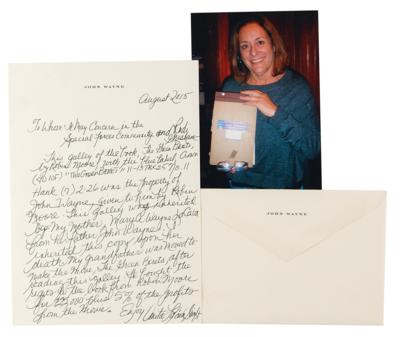 JOHN WAYNE
August 2015
To Whom It May Concern in the
Special Forces Community and
This galley of the book, The Green Berets,
by Robin Moore, with the blue label, Crown
Hank (?) 2-26 was the property of
John Wayne, given to him by Robin
Moore. This galley was inherited
by my Mother, Mary A. Wayne LaCava
from her father, John Wayne. I
inherited this copy upon her
death. My grandfather was moved to
make the movie, The Green Berets, after
reading this galley. He bought the
rights to the book from Robin Moore
for plus 5% of the profits
from the movie. Enjoy
JOHN WAYNE